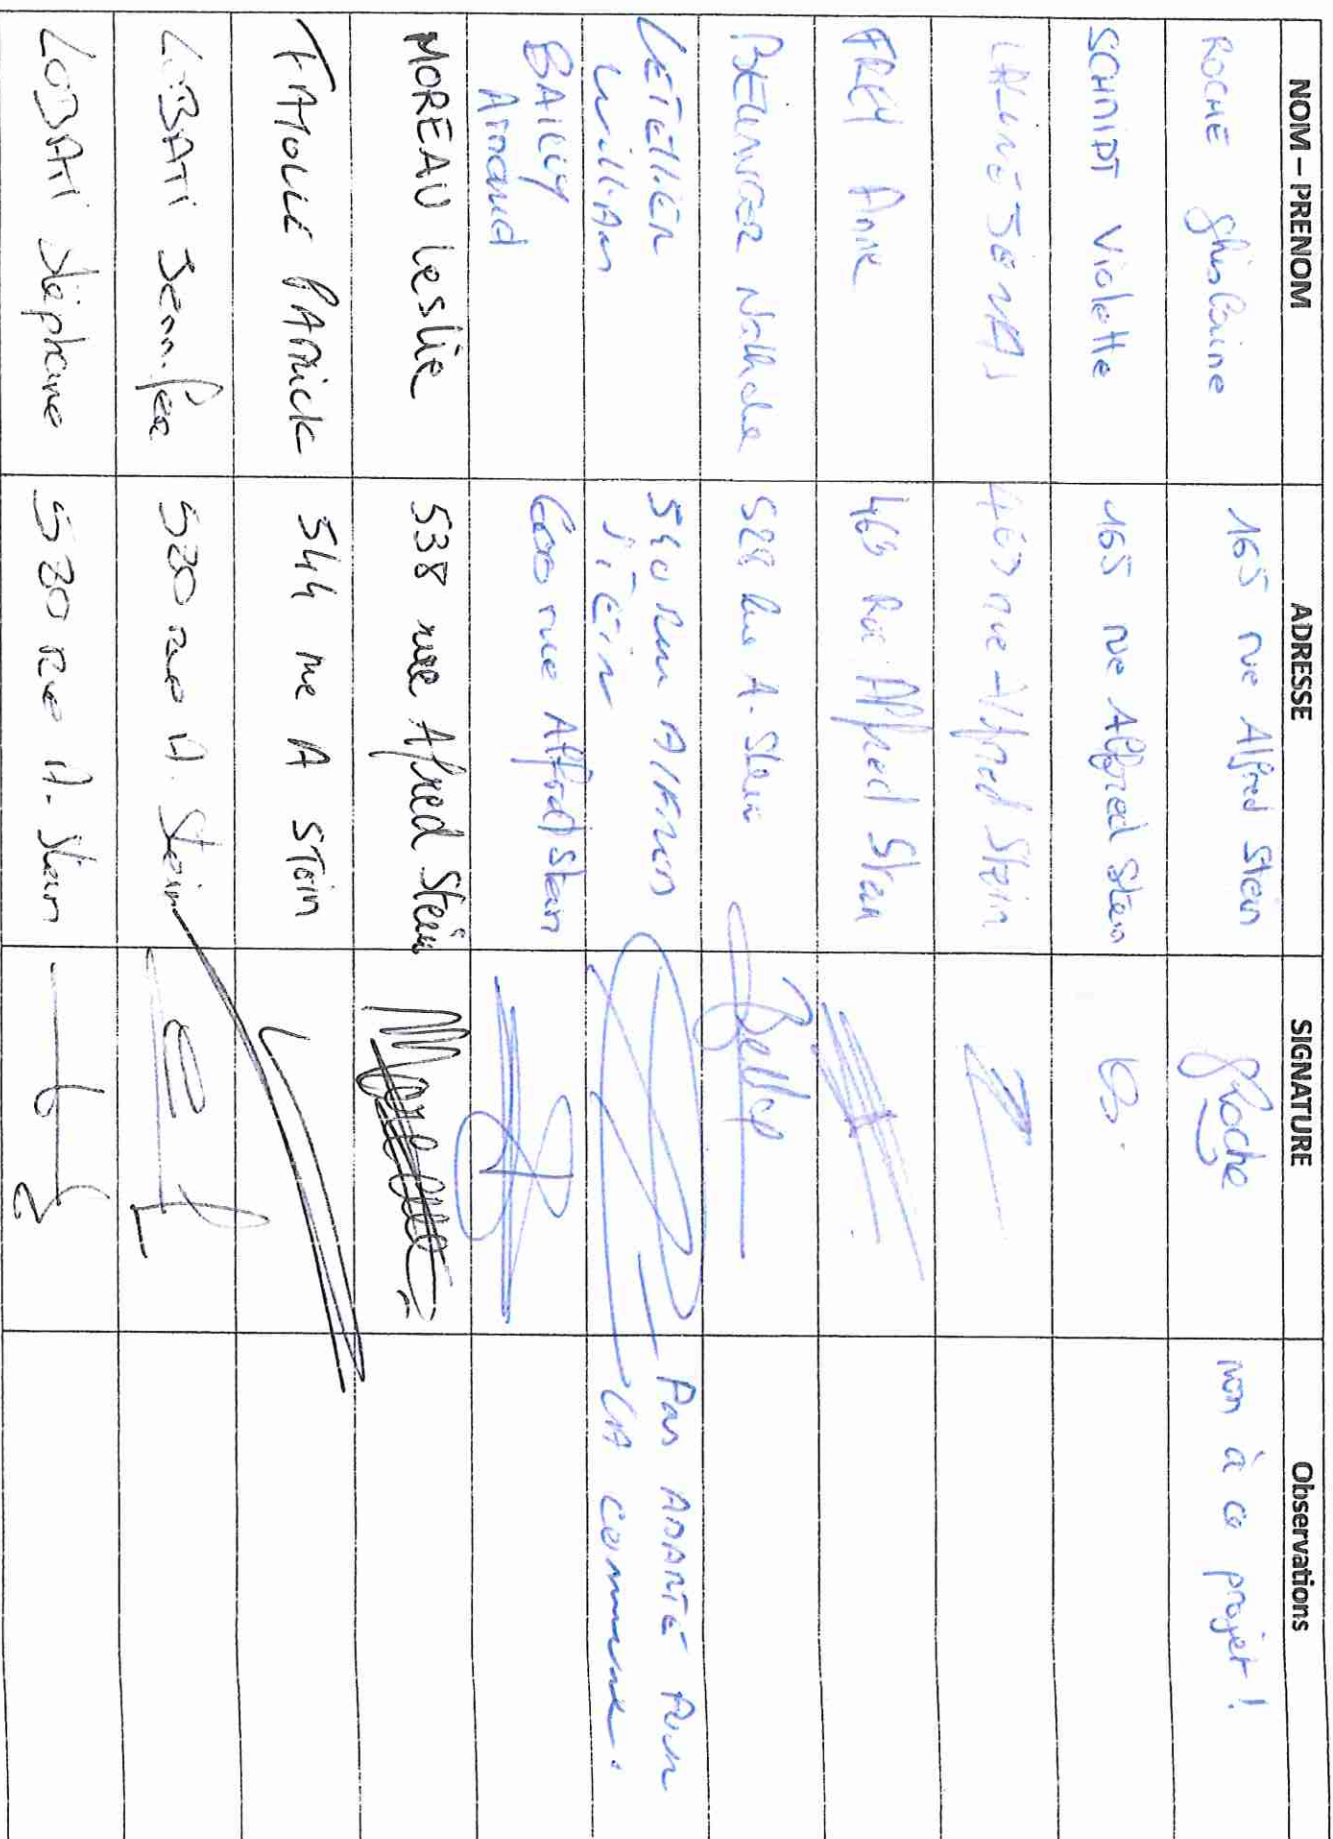 NOM – PRENOM ADRESSE SIGNATURE Observations
ROCHE Ghislaine 165 rue Alfred Stein GRoche non à ce projet !
SCHMIDT Violette 165 rue Alfred Stein
469 rue Alfred Stein
FREY Anne 469 Rue Alfred Stein
Nathalie 528 Rue A. Stein
LETELLIER 540 Rue Alfred Pas ADAPTÉ POUR
William STEIN LA commune.
BAILLY 600 rue Alfred Stein
Arnaud
MOREAU Leslie 538 rue Alfred Stein
PATRICK 544 rue A STEIN
LOBATI Jennifer 520 rue A. Stein
LOBATI Stéphane 520 rue A. Stein